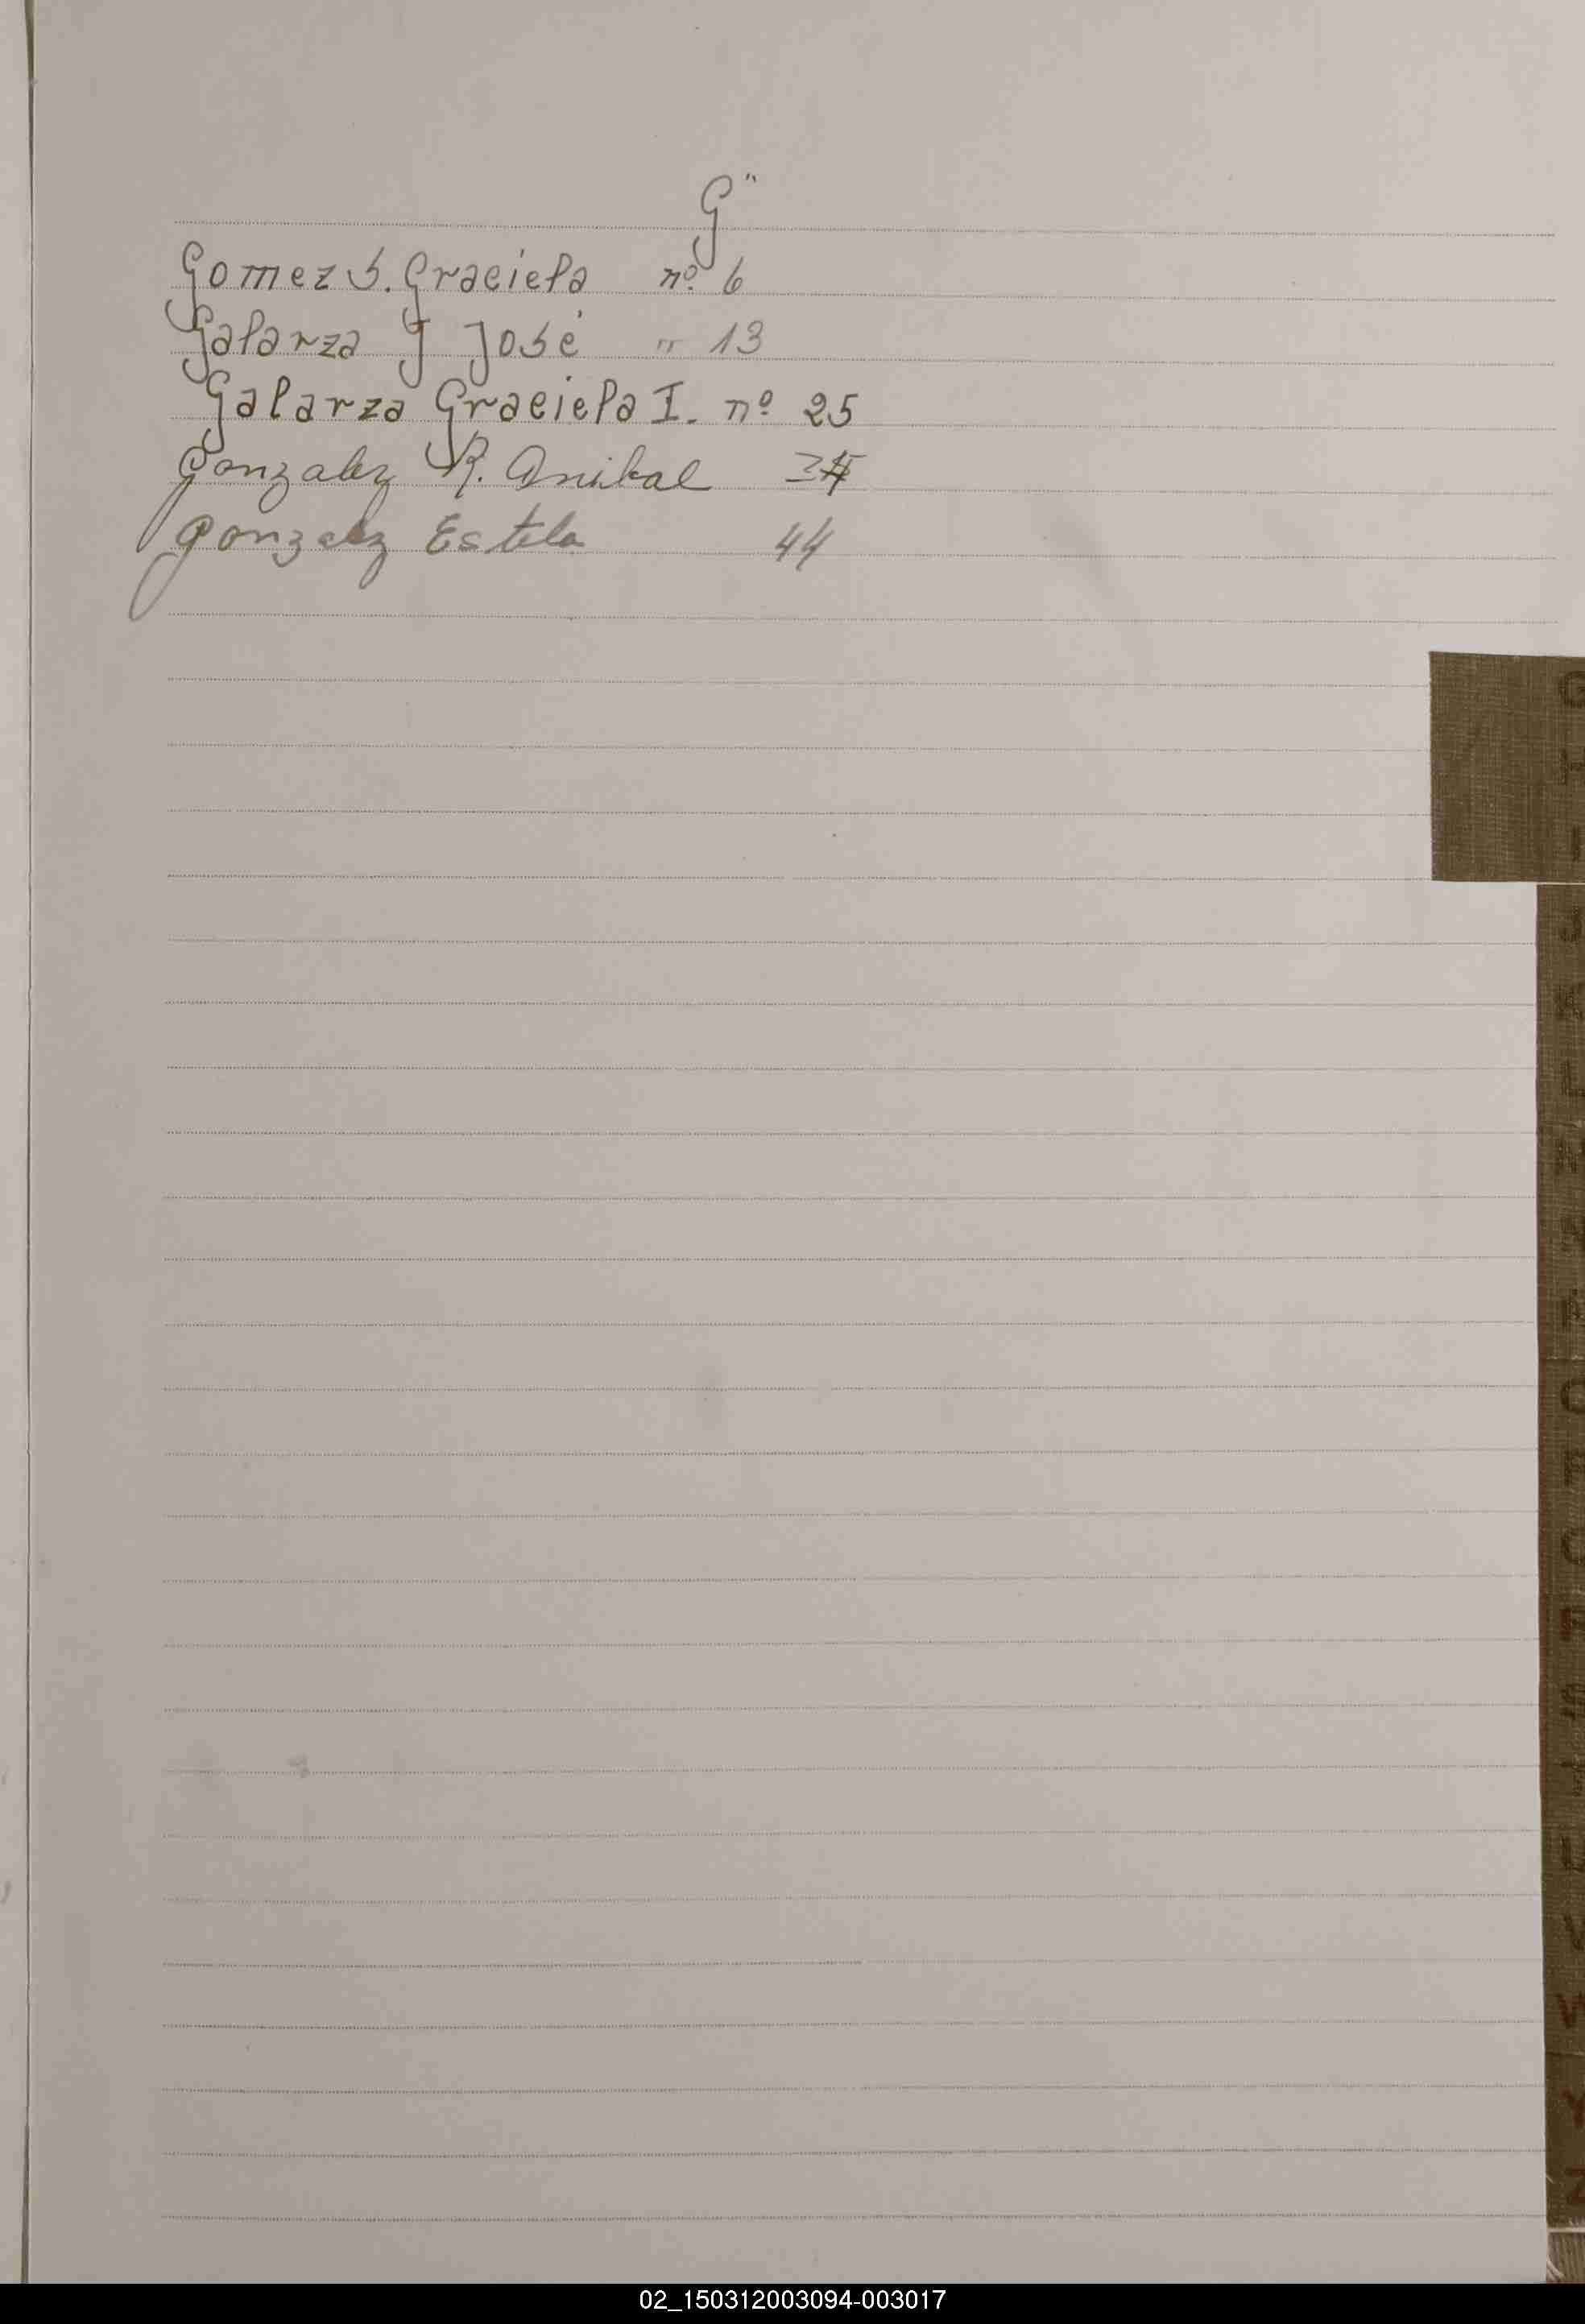 G"
Gomez S. Graciela nº 6
Galarza J José " 13
Galarza Graciela I. nº 25
Gonzalez R. Anibal
Gonzalez Estela 44
02_150312003094-003017